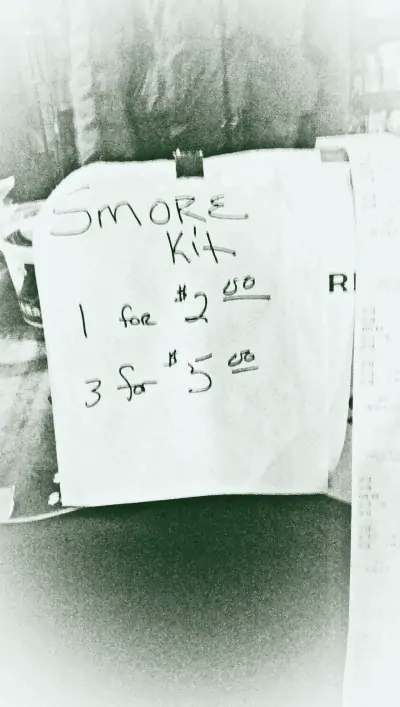 SMORE
Kit
1 for $2 00
3 for $5 00
R